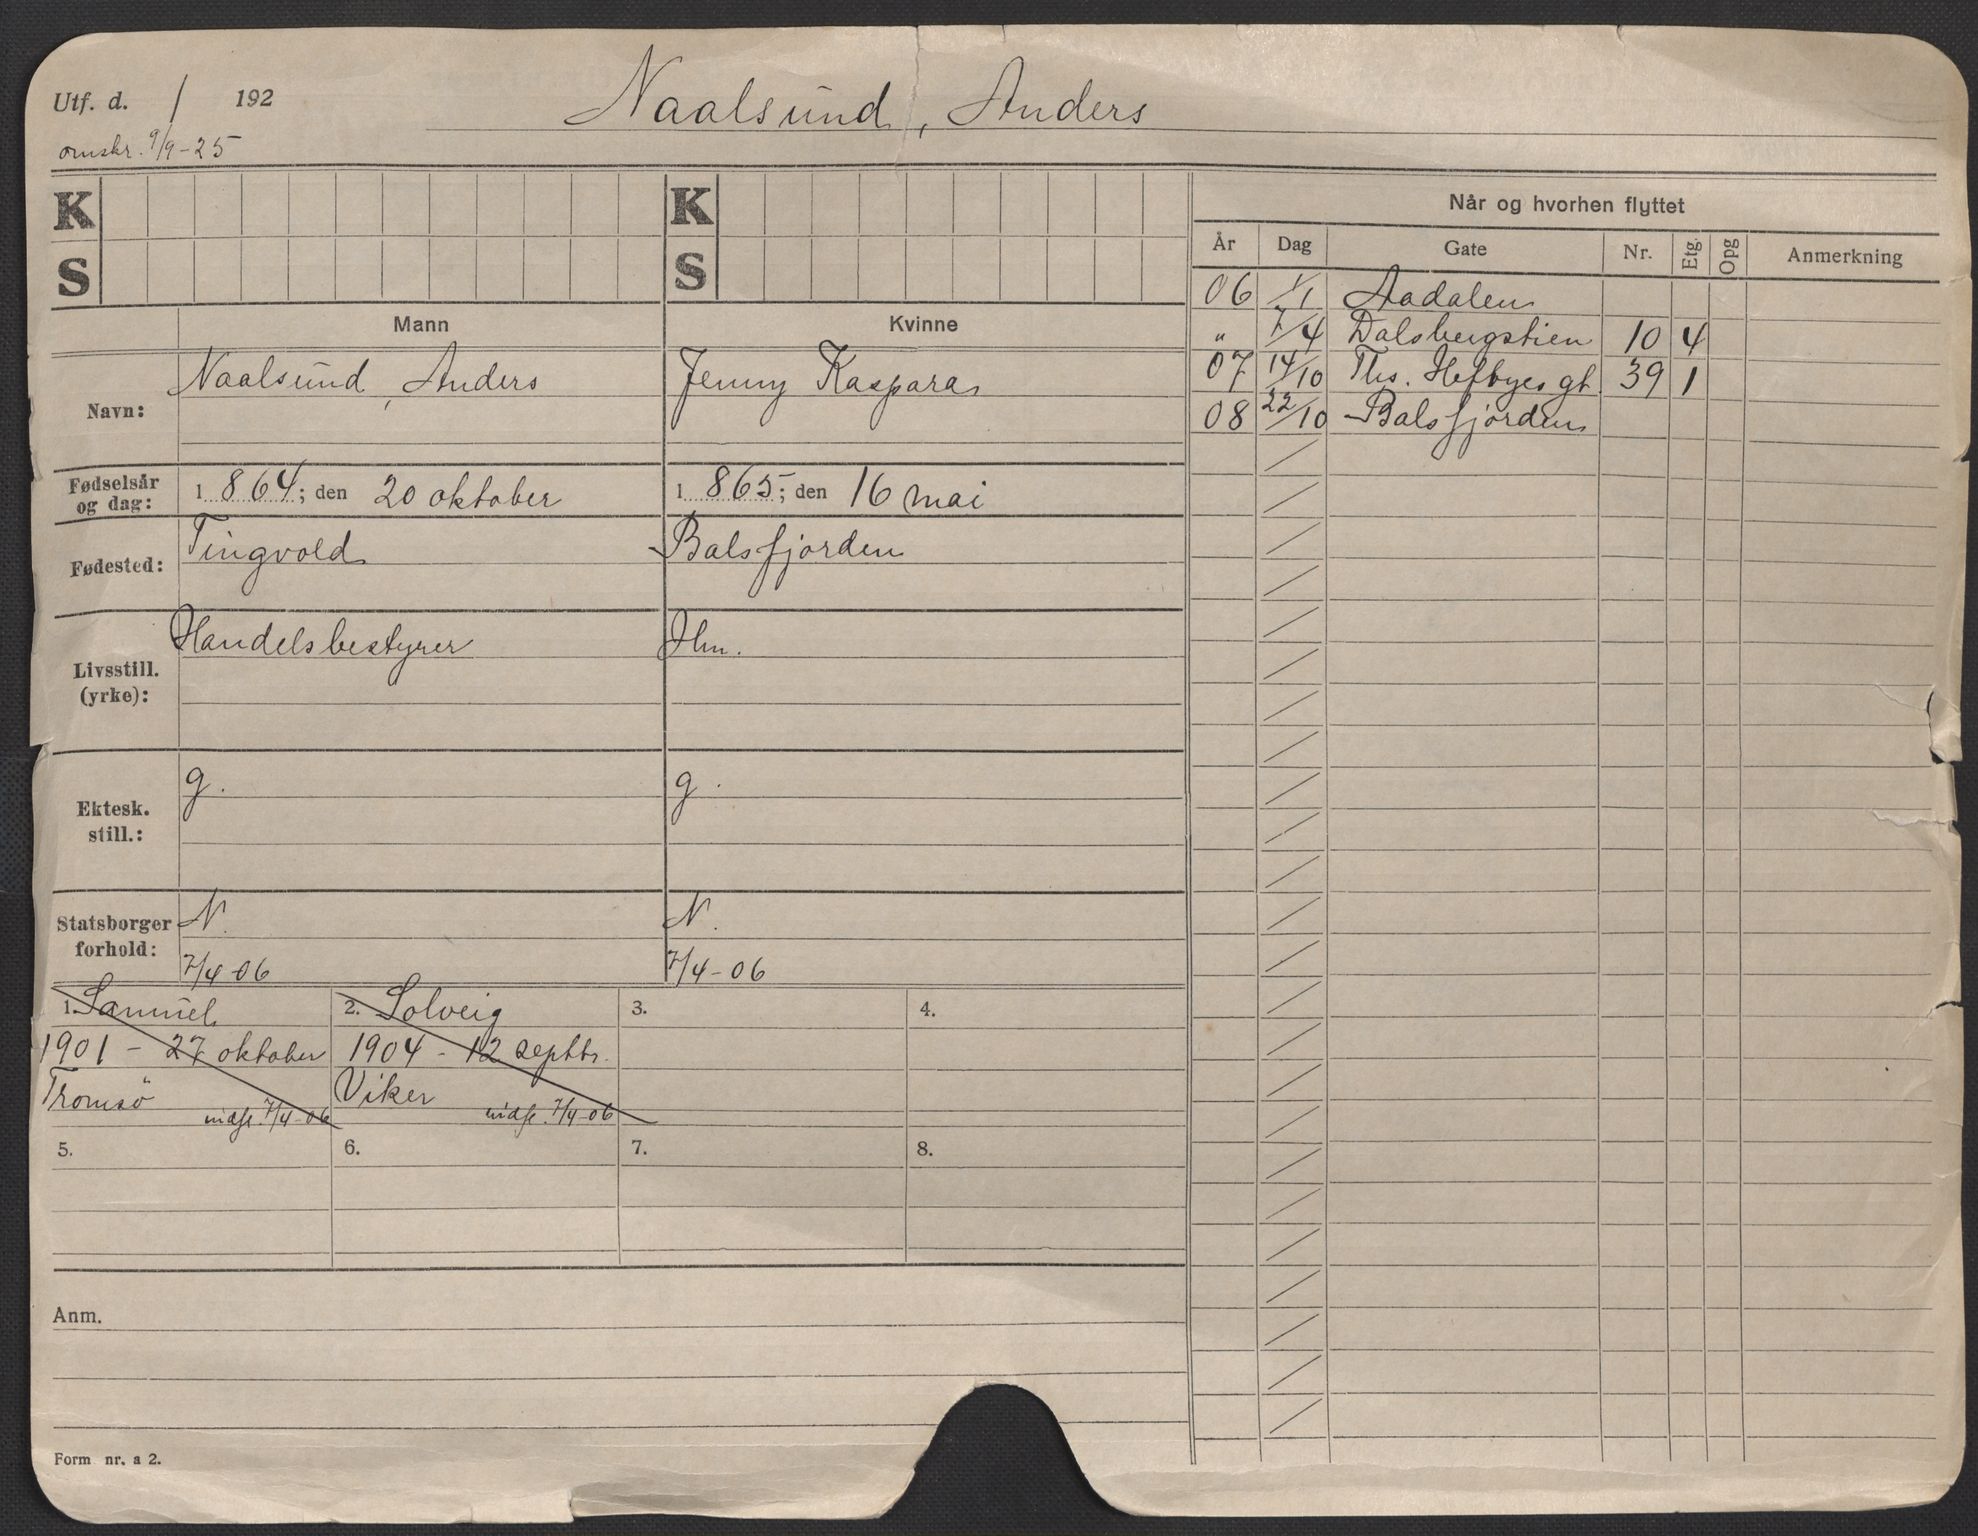 Utf. d. / 192
Naalsund, Anders
omskr. 9/9-25
K
S
K
S
Mann
Kvinne
Navn:
Naalsund, Anders
Jenny Kaspara
Fødselsår
og dag:
1 864; den 20 oktober
1 865; den 16 mai
Fødested:
Tingvold
Balsfjorden
Livsstill.
(yrke):
Handelsbestyrer
Hm.
Ektesk.
still.:
g.
g.
Statsborger
forhold:
N.
7/4-06
N.
7/4-06
1. Samuel
1901 - 27 oktober
Tromsö
indfl. 7/4-06
2. Solveig
1904 - 12 septbr.
Viker
indfl. 7/4-06
3.
4.
5.
6.
7.
8.
Anm.
Form nr. a 2.
Når og hvorhen flyttet
År Dag Gate Nr. Etg. Opg Anmerkning
06 1/1 Aadalen
" 7/4 Dalsbergstien 10 4
07 14/10 Ths. Heftyes gt. 39 1
08 22/10 Balsfjorden